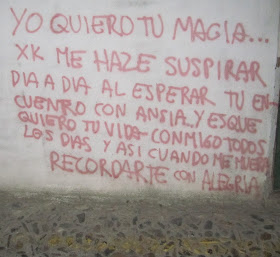 YO QUIERO TU MAGIA...
XK ME HAZE SUSPIRAR
DIA A DIA AL ESPERAR TU EN
CUENTRO CON ANSIA.. Y ESQUE
QUIERO TU VIDA CONMIGO TODOS
LOS DIAS Y ASI CUANDO ME MUERA
RECORDARTE CON ALEGRIA